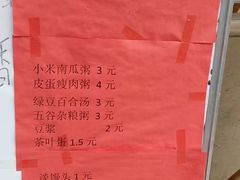 小米南瓜粥 3 元
皮蛋瘦肉粥 4 元
绿豆百合汤 3 元
五谷杂粮粥 3 元
豆浆 2 元
茶叶蛋 1.5 元
淡馒头 1 元